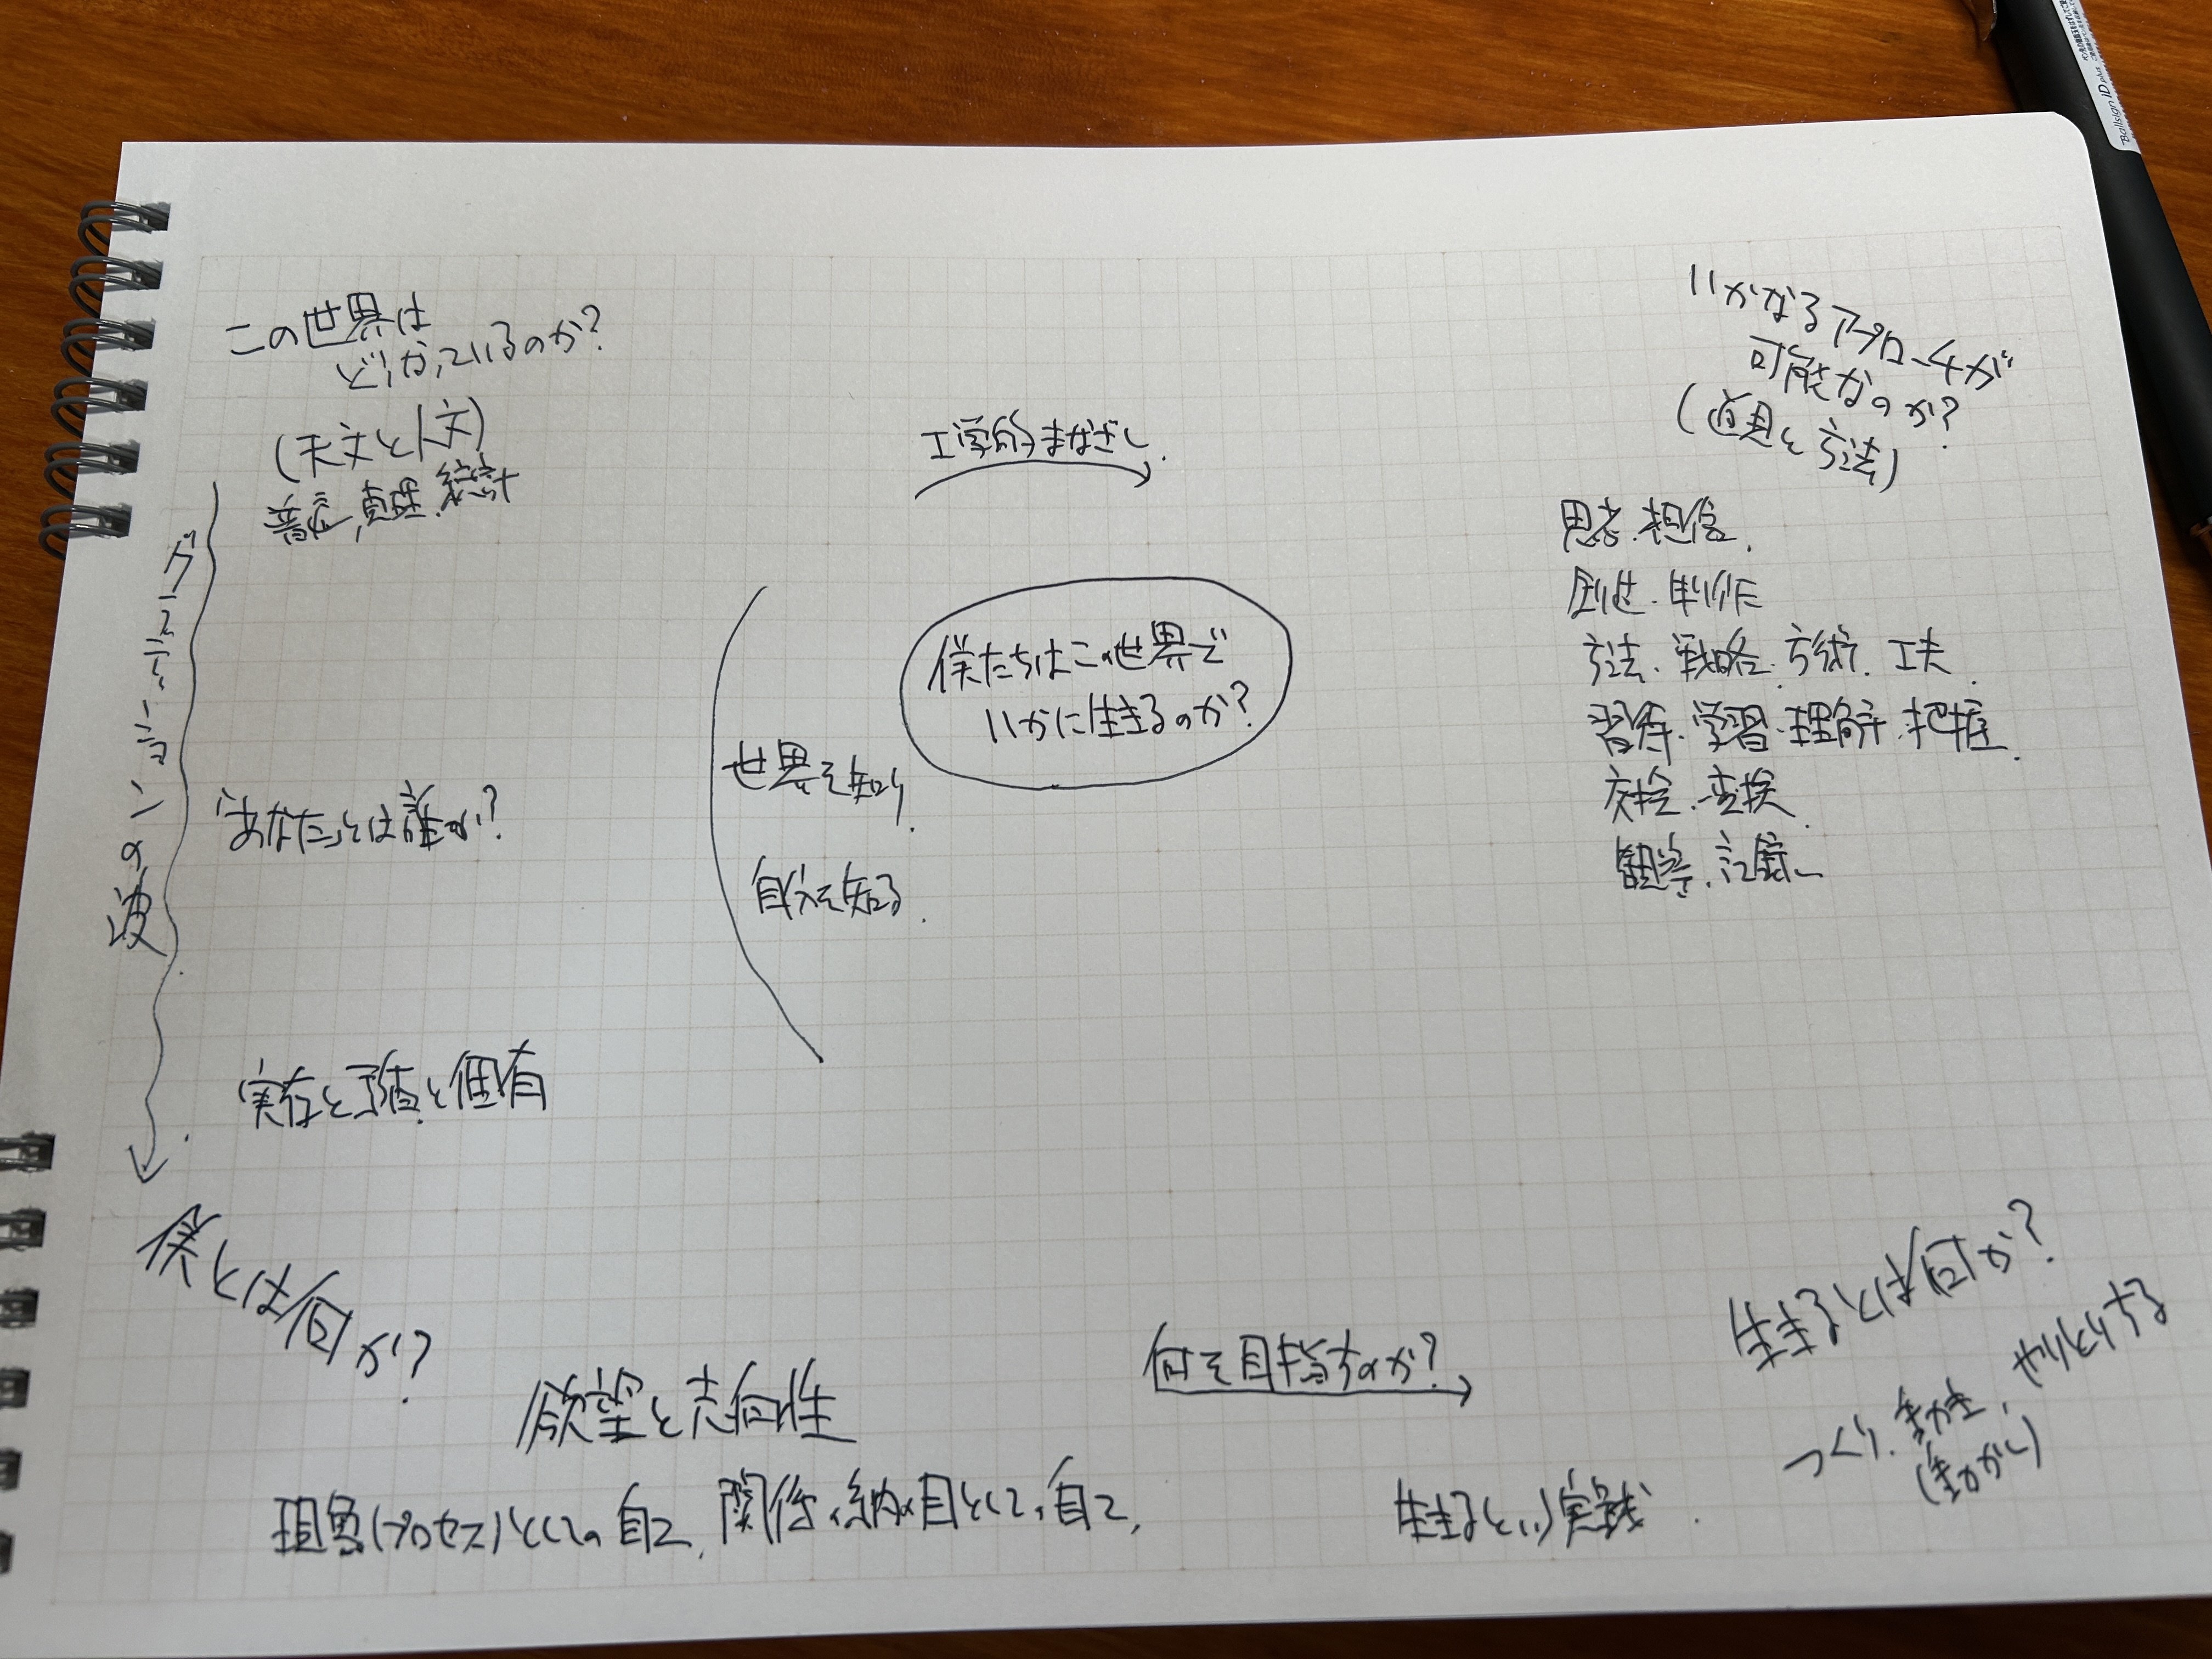 この世界は
どうなっているのか?
(天文と人文)
普遍、真理、統計
グラデーションの波
「あなた」とは誰か?
実存と予測と固有
僕とは何か?
工学的まなざし
僕たちはこの世界で
いかに生きるのか?
世界を知り、
自分を知る。
いかなるアプローチが
可能なのか?
(道具と方法)
思考・想像、
創造・制作
方法・戦略・方術・工夫、
習得・学習・理解・把握、
交換・変換、
観察・記録
欲望と志向性
何を目指すのか?
現象(プロセス)としての自己、関係の網の目としての自己、
生きるとは何か?
つくり、動かし、やりとりする
(動かし)
生きるという実践。
Ballsign iD plus